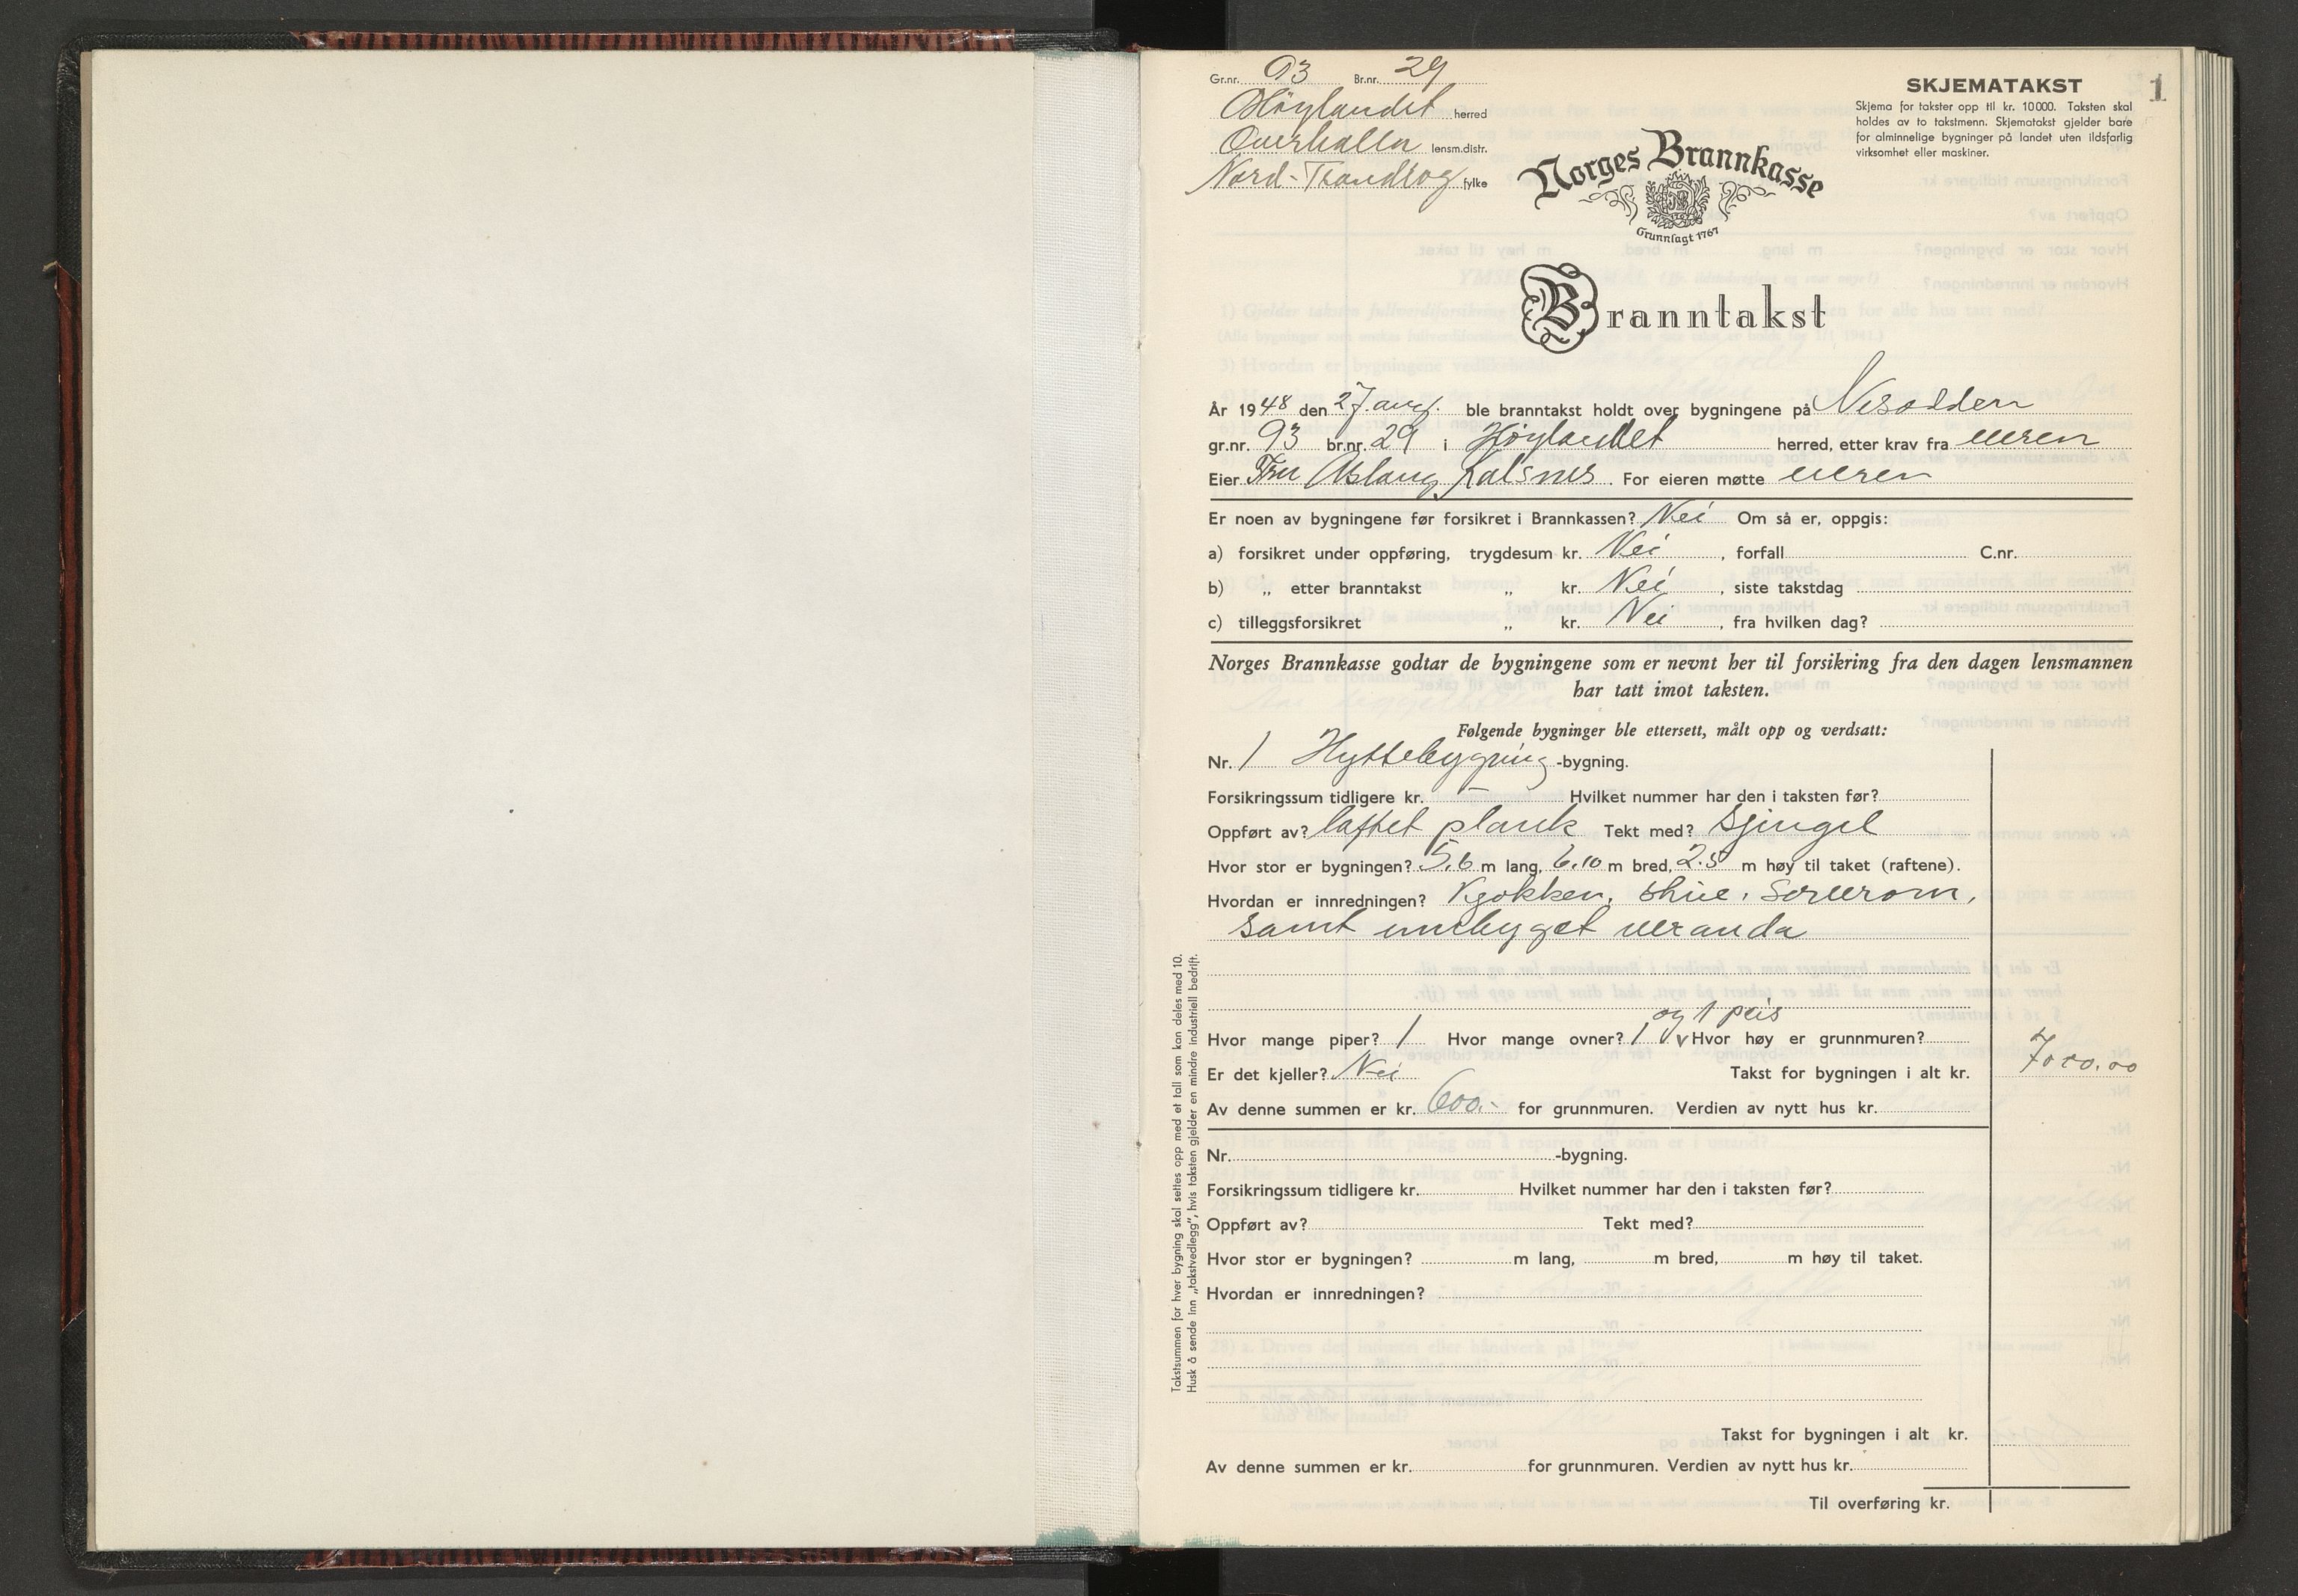 Gr.nr. 93 Br.nr. 29
Høylandet herred
Overhalla lensm.distr.
Nord-Trøndelag fylke
SKJEMATAKST
1
Skjema for takster opp til kr. 10000. Taksten skal
holdes av to takstmenn. Skjematakst gjelder bare
for alminnelige bygninger på landet uten ildsfarlig
virksomhet eller maskiner.
Norges Brannkasse
Grunnlagt 1767
Branntakst
År 1948 den 27. aug. ble branntakst holdt over bygningene på Nesodden
gr.nr. 93 br.nr. 29 i Høylandet herred, etter krav fra eieren
Eier Fru Aslaug Kalsnes. For eieren møtte eieren
Er noen av bygningene før forsikret i Brannkassen? Nei Om så er, oppgis:
a) forsikret under oppføring, trygdesum kr. Nei, forfall C.nr.
b) „ etter branntakst „ kr. Nei, siste takstdag
c) tilleggsforsikret „ kr. Nei, fra hvilken dag?
Norges Brannkasse godtar de bygningene som er nevnt her til forsikring fra den dagen lensmannen
har tatt imot taksten.
Følgende bygninger ble ettersett, målt opp og verdsatt:
Nr. 1 Hyttebygning -bygning.
Forsikringssum tidligere kr. — Hvilket nummer har den i taksten før?
Oppført av? laftet plank Tekt med? Sjingel
Hvor stor er bygningen? 5.6 m lang, 6.10 m bred, 2.5 m høy til taket (raftene).
Hvordan er innredningen? Kjøkken, stue, soverom,
samt innbygget veranda
og 1 peis
Hvor mange piper? 1 Hvor mange ovner? 1 v Hvor høy er grunnmuren?
Er det kjeller? Nei Takst for bygningen i alt kr. 7000.00
Av denne summen er kr. 600.- for grunnmuren. Verdien av nytt hus kr.
Nr. -bygning.
Forsikringssum tidligere kr. Hvilket nummer har den i taksten før?
Oppført av? Tekt med?
Hvor stor er bygningen? m lang, m bred, m høy til taket.
Hvordan er innredningen?
Takst for bygningen i alt kr.
Av denne summen er kr. for grunnmuren. Verdien av nytt hus kr.
Til overføring kr.
Takstsummen for hver bygning skal settes opp med et tall som kan deles med 10.
Husk å sende inn „takstvedlegg", hvis taksten gjelder en mindre industriell bedrift.